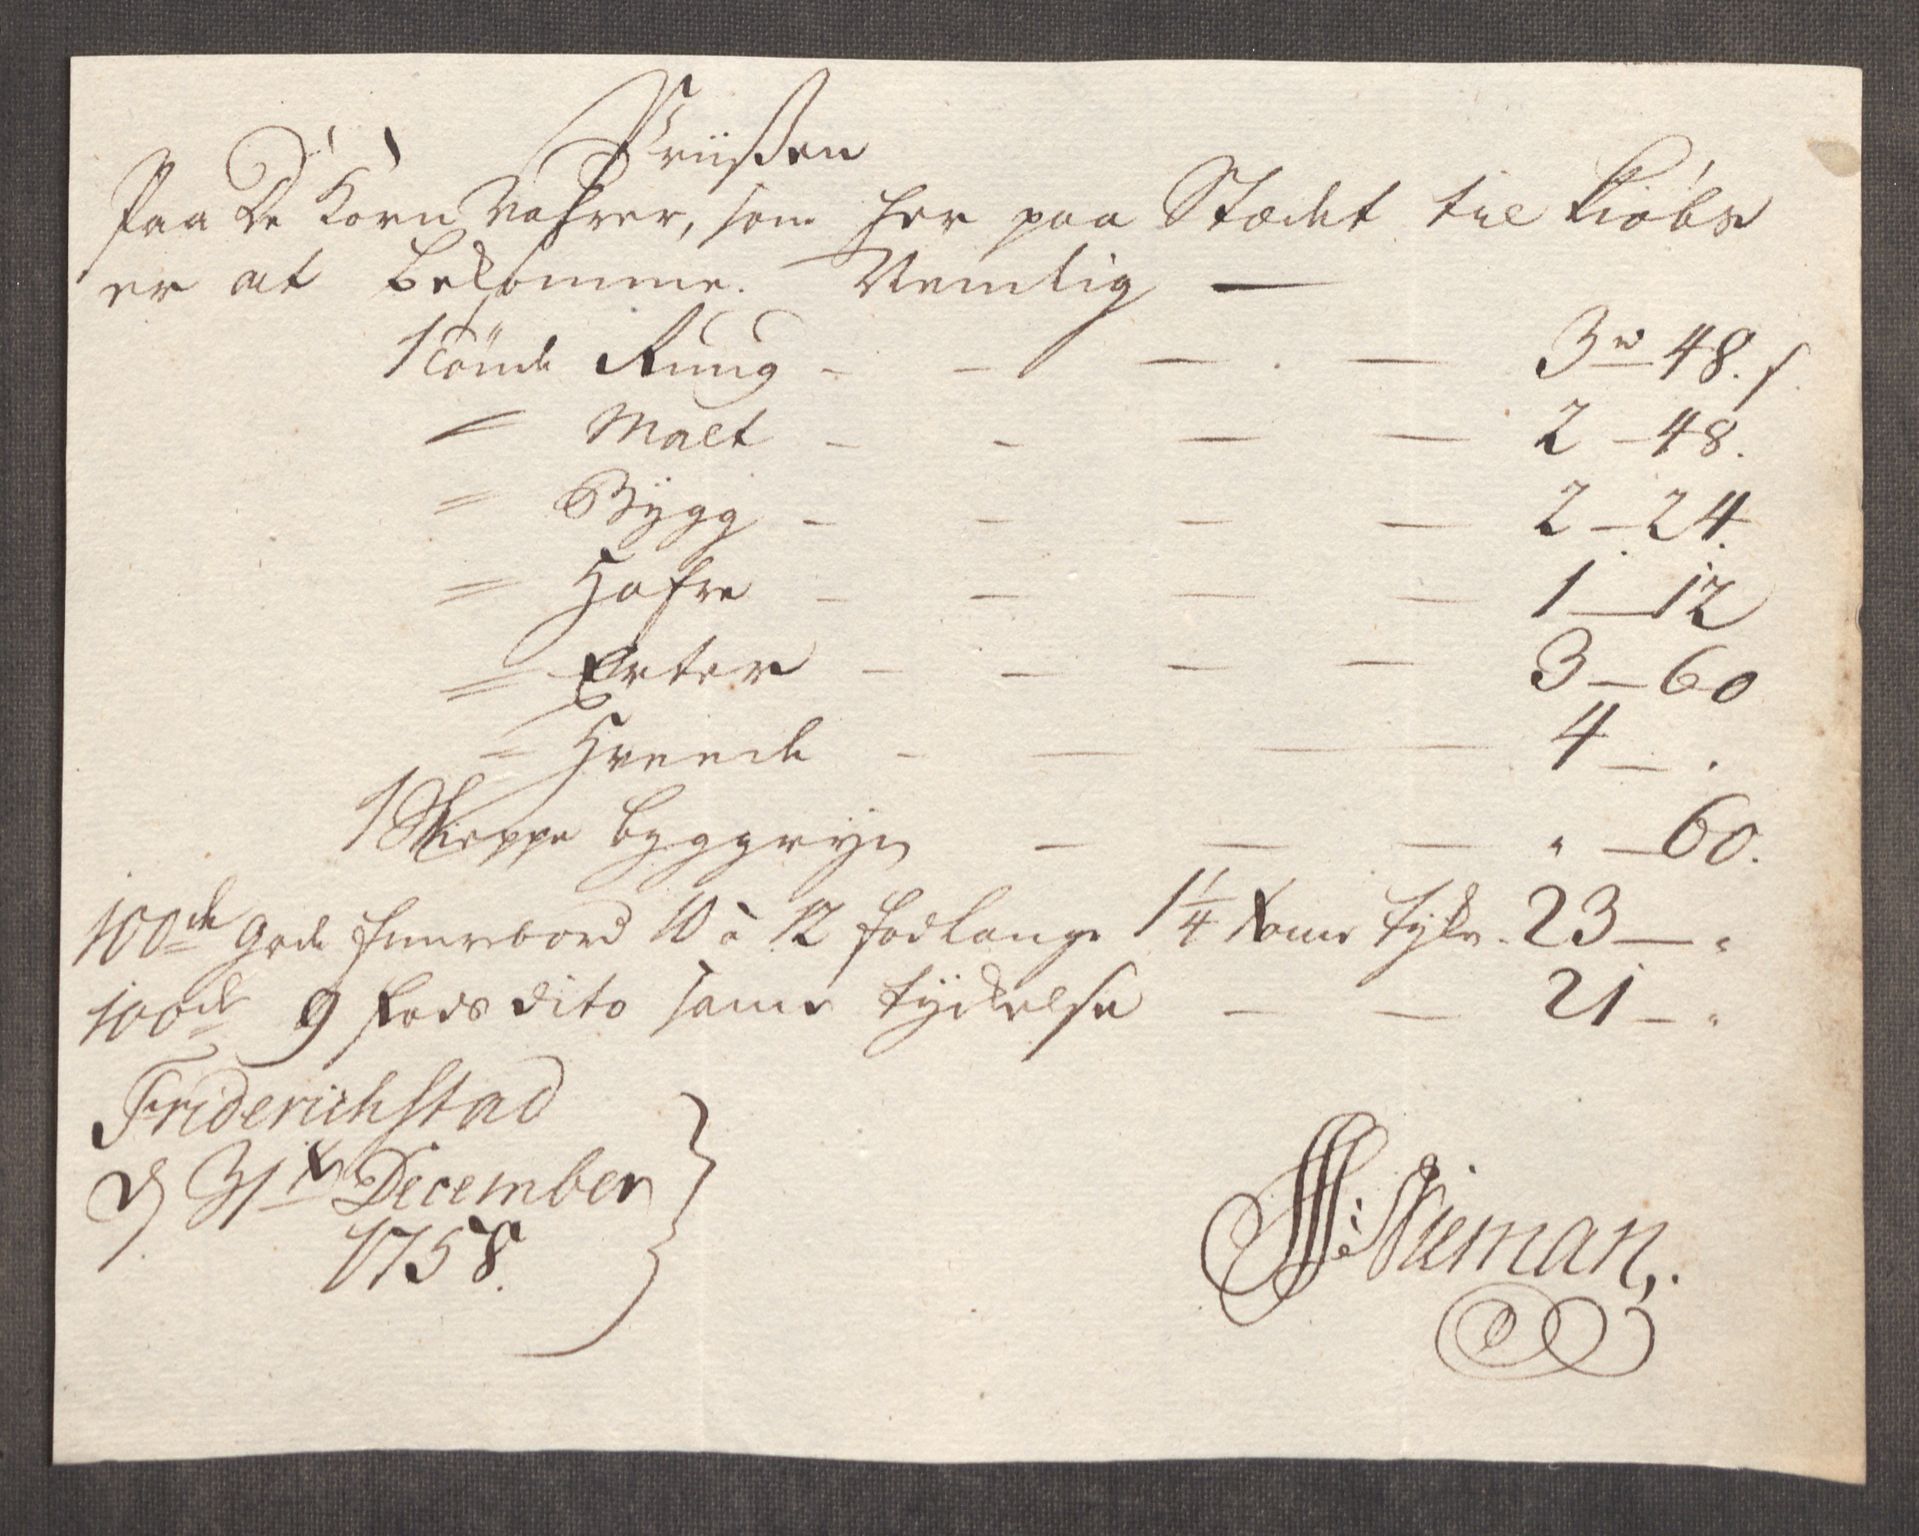 Priisen
Paa De Korn Vahrer, som her paa Stædet til Kiøbs
er at bekomme. Nemlig —
1 Tönde Ruug - - - - 3 rd 48. s.
" Malt - - - - 2 - 48.
" Bÿgg - - - - 2 - 24.
" Hafre - - - - 1 - 12
" Erter - - - - 3 - 60
" Hveede - - - - 4 - .
1 Skieppe byggryn - - - " - 60.
100de gode furrebord 10 à 12 fod lange 1 1/4 tomr tÿke. 23 - "
100de 9 fods dito same tÿckelse - - 21 - "
Friderichstad
d 31te December
1758.
Nieman,.